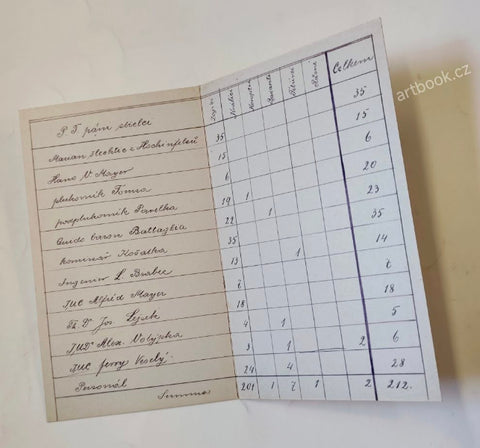 P. T. pán střelec Zajíci Králíci Koroptve Bažanti Různé Celkem
Marian šlechtic z Hochinfelsů 35 35
Hans V. Mayer 15 15
plukovník Tomsa 6 6
podplukovník Pavelka 19 1 20
Guido baron Battaglia 22 1 23
komisař Košatka 35 35
Ingenieur L. Brabec 13 1 14
JUC Alfréd Mayer
Th. Dr. Jos. Lejsek 18 18
JUDr Alex. Volýnka 4 1 5
JUC Jerry Veselý 3 1 2 6
Personál 24 4 28
Summa 201 1 1 2 212.
artbook.cz